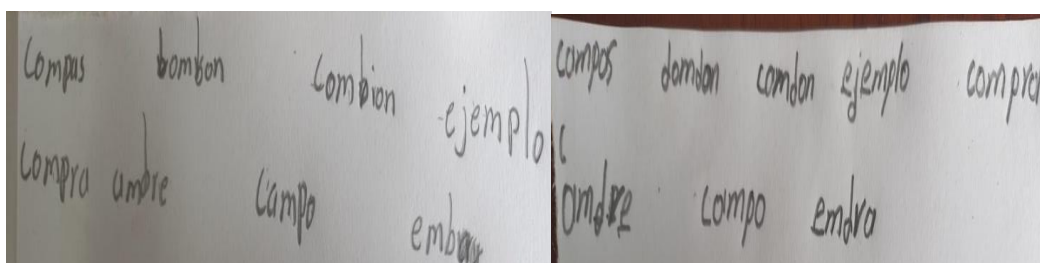 compas bombon combion ejemplo
compra ambre campo embra
campos domdon comdon ejemplo compren
c
omdre campo emdra